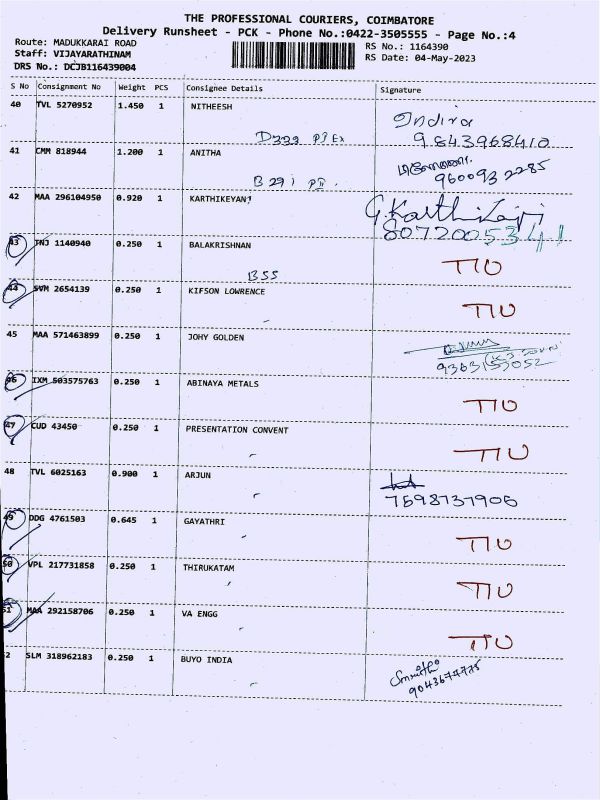 THE PROFESSIONAL COURIERS, COIMBATORE
Delivery Runsheet - PCK - Phone No.:0422-3505555 - Page No.:4
Route: MADUKKARAI ROAD
Staff: VIJAYARATHINAM
DRS No.: DCJB116439004
RS No.: 1164390
RS Date: 04-May-2023
S No Consignment No Weight PCS Consignee Details Signature
40 TVL 5270952 1.450 1 NITHEESH Indira
9843968410
41 CMM 818944 1.200 1 ANITHA
B 291 9600932285
42 MAA 296104950 0.920 1 KARTHIKEYAN
8072005341
43 TNJ 1140940 0.250 1 BALAKRISHNAN
BSS
44 SVM 2654139 0.250 1 KIFSON LOWRENCE
45 MAA 571463899 0.250 1 JOHY GOLDEN
46 IXM 503575763 0.250 1 ABINAYA METALS
47 CUD 43450 0.250 1 PRESENTATION CONVENT
48 TVL 6025163 0.900 1 ARJUN
7598737906
49 DDG 4761503 0.645 1 GAYATHRI
50 VPL 217731858 0.250 1 THIRUKATAM
51 MAA 292158706 0.250 1 VA ENGG
2 SLM 318962183 0.250 1 BUYO INDIA